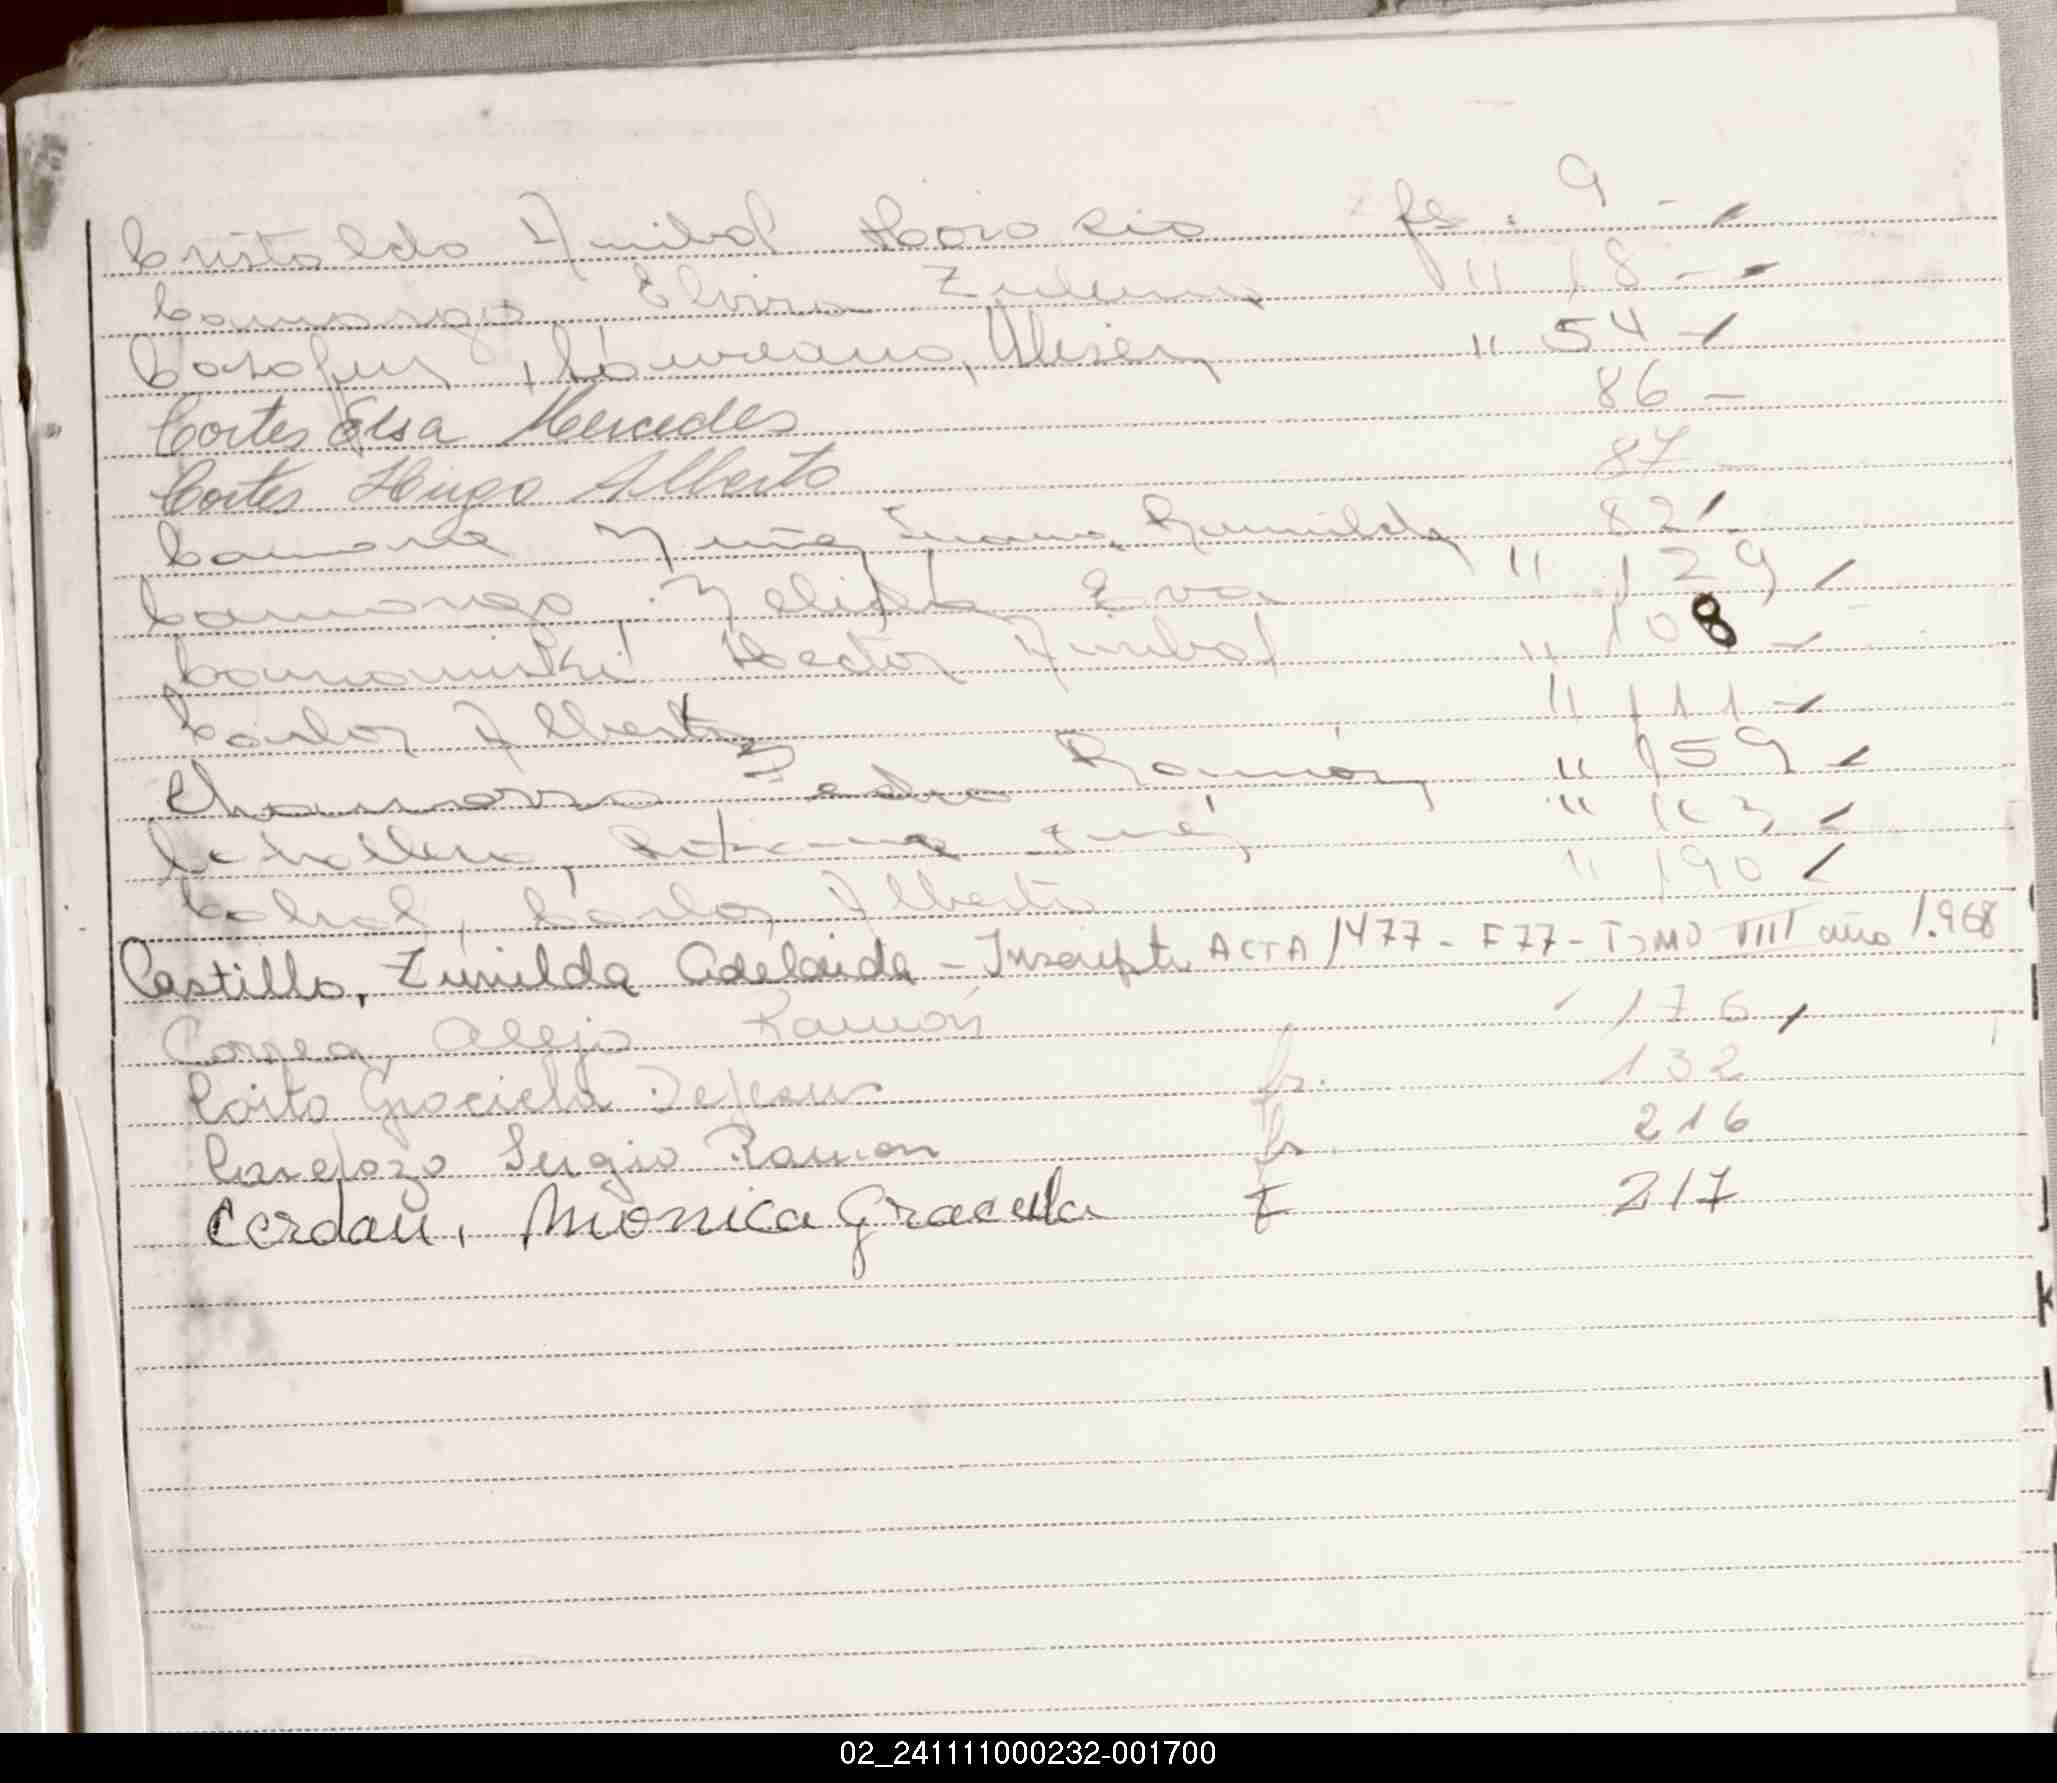 Cristaldo Anibal Horacio fs. 9 -
Camargo Elvira Zulema " 18 -
" 54 -
Cortes Elsa Mercedes 86 -
Cortes Hugo Alberto 87 -
Ramilda 82
Camargo Nelida Eva " 129
Hector Anibal " 108 -
Alberto " 111 -
Chamorro Pedro Ramón " 159
Caballero, Inés " 163
Cabral, Carlos Alberto " 190
Castillo, Zunilda Adelaida - Inscripta ACTA 1477 - F77 - TOMO VIII año 1.968
Correa, Alejo Ramón 176
Graciela De Jesus fs. 132
Cardozo Sergio Ramon fs. 216
Cerdan, Monica Graciela F 217
02_241111000232-001700